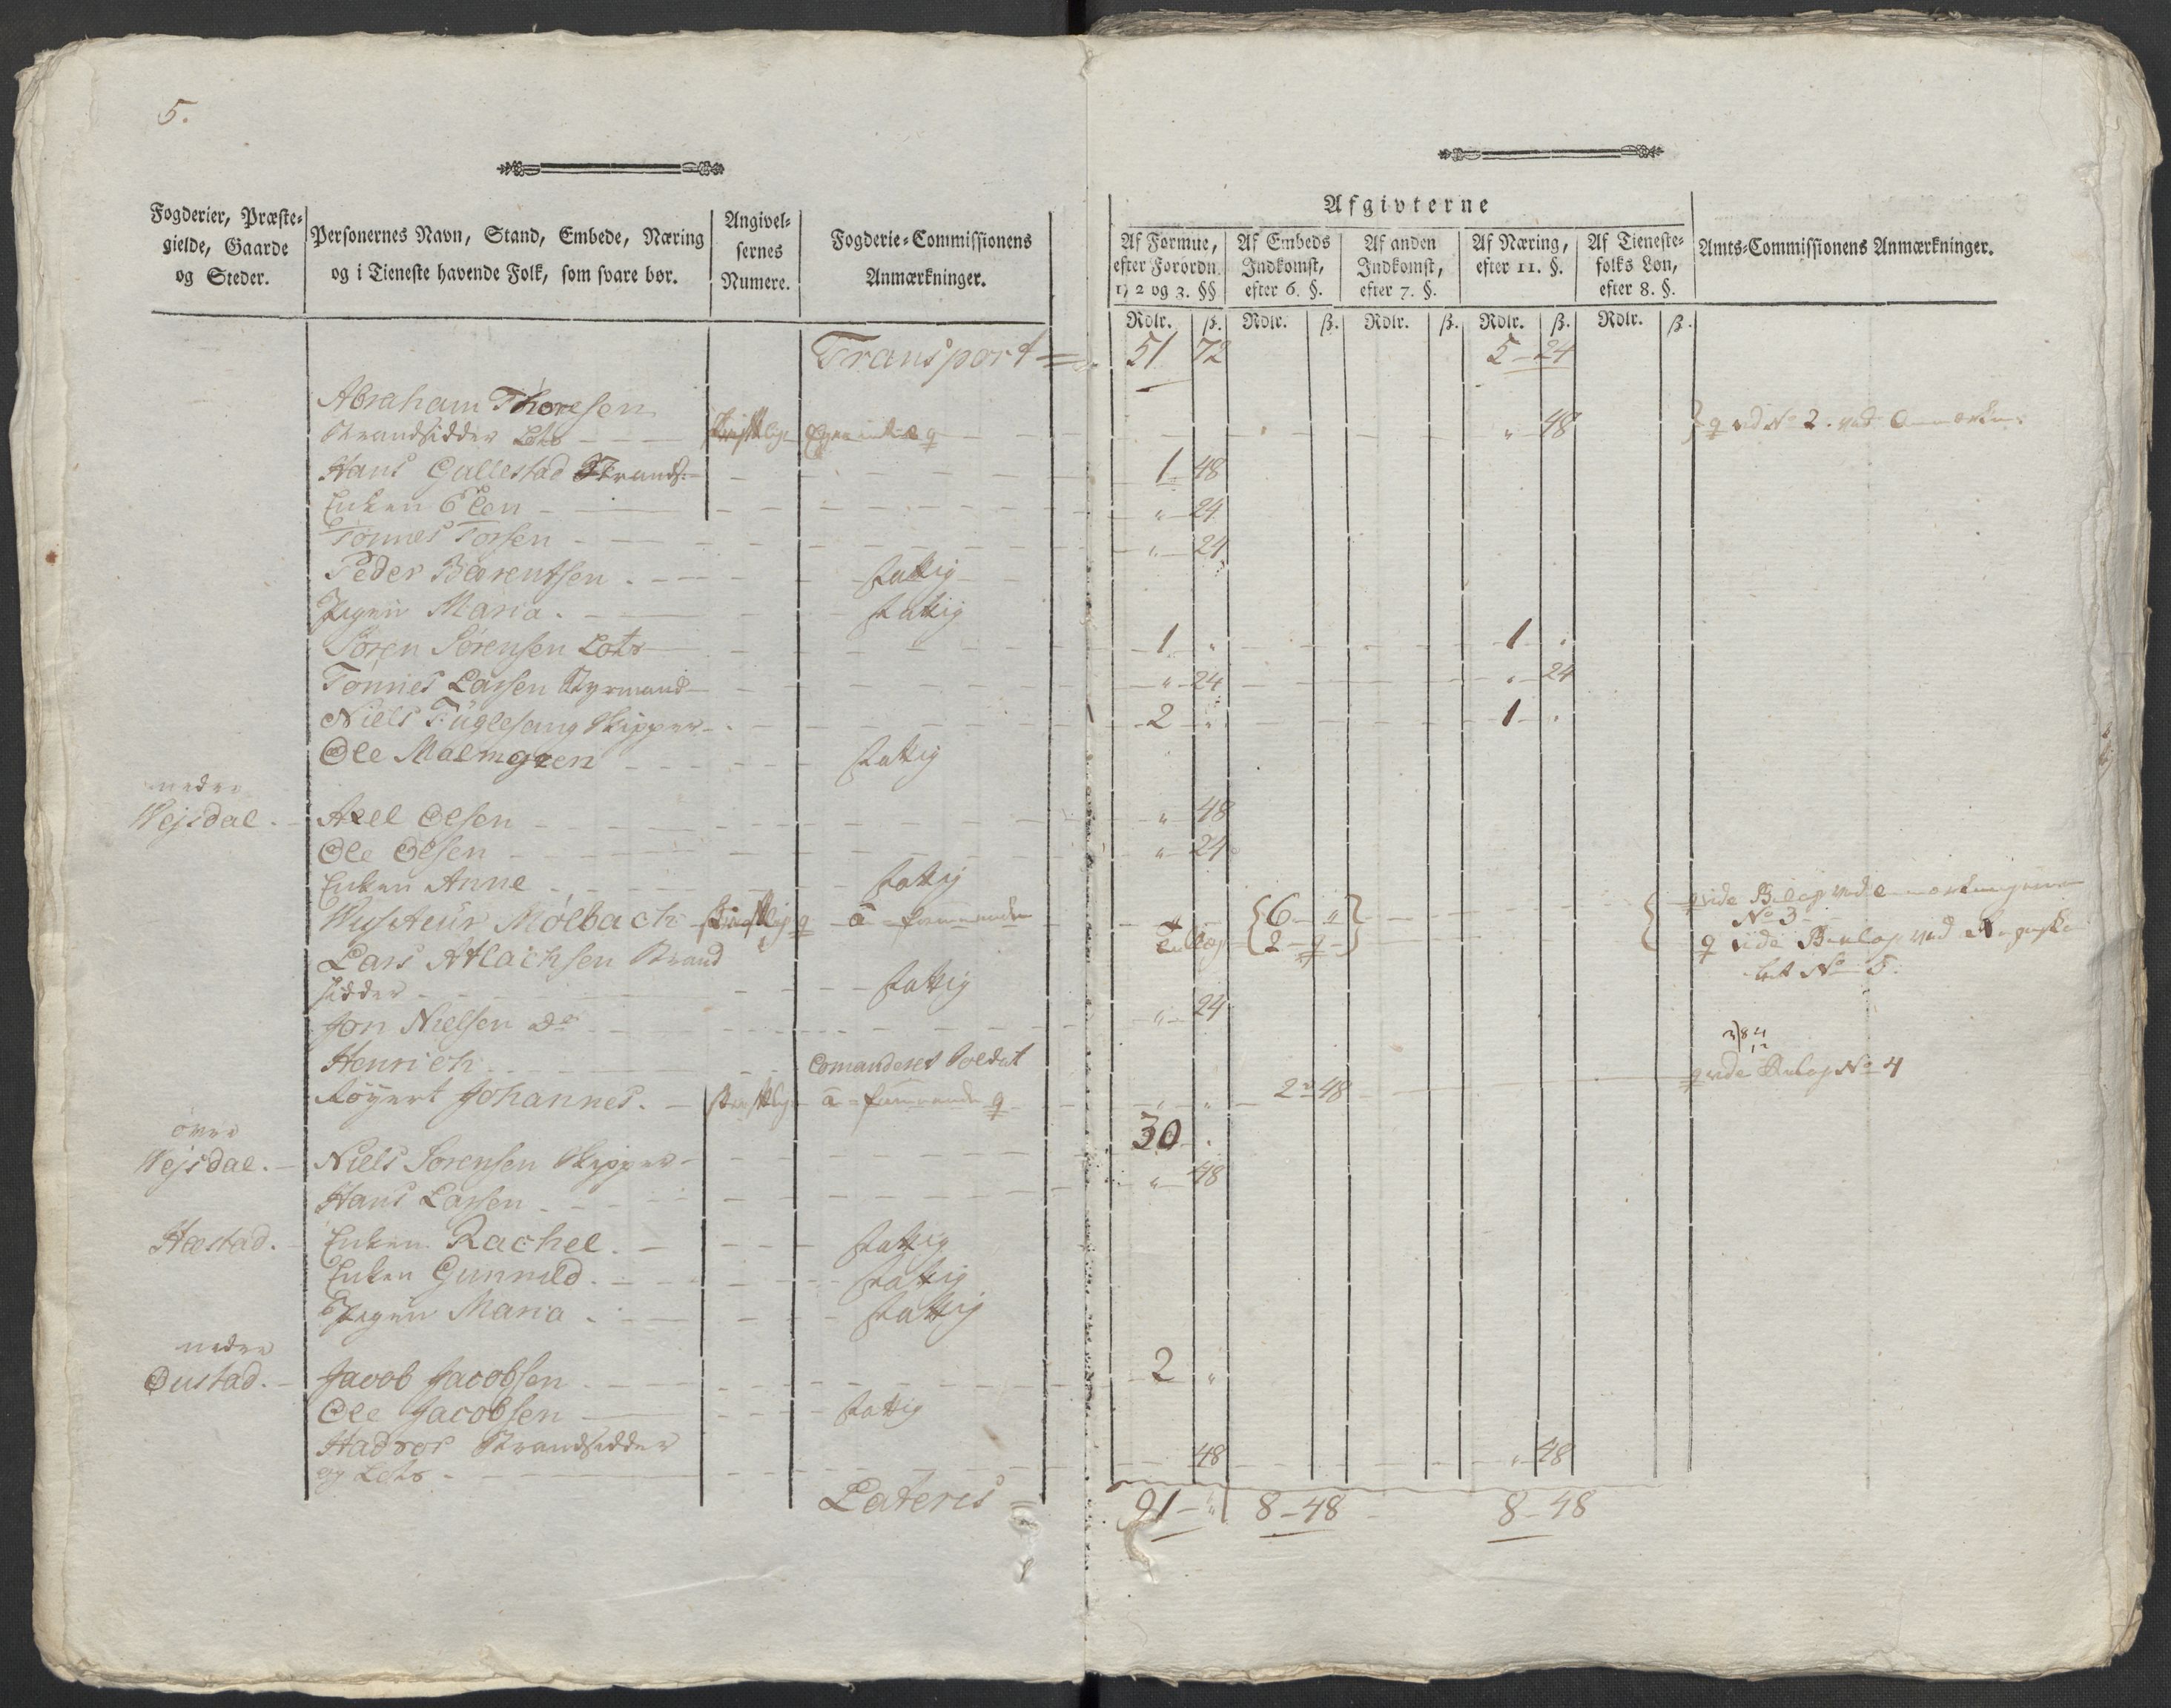 5.
Fogderier, Præste-
gielde, Gaarde
og Steder.
Personernes Navn, Stand, Embede, Næring
og i Tieneste havende Folk, som svare bør.
Angivel-
sernes
Numere.
Fogderie-Commissionens
Anmærkninger.
Afgivterne
Af Formue,
efter Forordn.
1, 2 og 3. §§
Af Embeds
Indkomst,
efter 6. §.
Af anden
Indkomst,
efter 7. §.
Af Næring,
efter 11. §.
Af Tieneste-
folks Løn,
efter 8. §.
Amts-Commissionens Anmærkninger.
Rdlr. ß. Rdlr. ß. Rdlr. ß. Rdlr. ß. Rdlr. ß.
Transport = 51 72 5 - 24
Abraham Thoresen
Strandsidder Lots - - - Skriftlig - " 48 } q vid No 2. ved
Hans Gullestad Strands. - 1 48
Enken Elen - " 24
Tønnes Torsen - " 24
Peder Bærentsen - fattig
Pigen Maria. - fattig
Søren Sørensen Lots 1 " 1 "
Tønnes Larsen Styrmand " 24 " 24
Niels Fuglesang Skipper 2 " 1 "
Ole Malmgren - fattig
nedre
Wejsdal. - Axel Olsen - " 48
Ole Olsen - " 24
Enken Anne - fattig
Mølbach - Skriftlig q - à - formuende { 6 - " } { q vide Bilag ved
No 3
{ 2 - q - } q vide Bilag ved
No 5.
Lars Atlachsen Strand
sidder - fattig
Jon Nielsen do - " 24
Henrich - Comanderet Soldat
Røyert Johannes. - Skriftlig à - formuende q " " 2 " 48 q vide Bilag No 4
øvre
Wejsdal. - Niels Sørensen Skipper - 30 "
Hans Larsen - " 48
Hæstad. - Enken Rachel. - fattig
Enken Gunnild. - fattig
Pigen Maria - fattig
nedre
Øustad. - Jacob Jacobsen - 2 "
Ole Jacobsen - fattig
Hadvor Strandsidder
og Lots - 48 " 48
Lateris = 91 - " 8 - 48 8 - 48